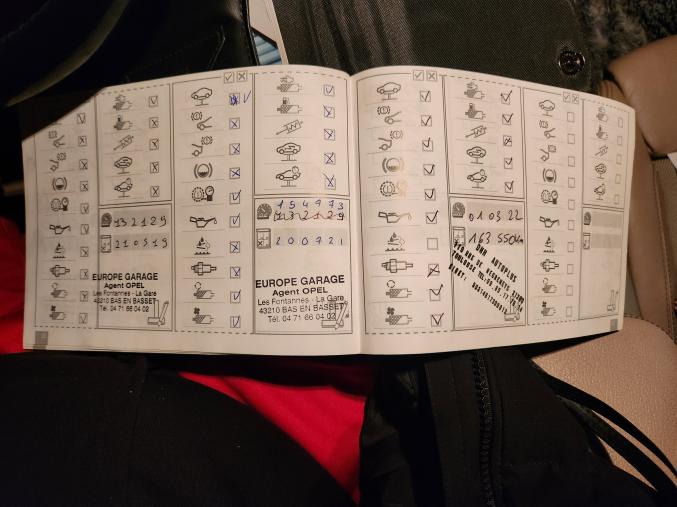 132129
210519
EUROPE GARAGE
Agent OPEL
Les Fontannes - La Gare
43210 BAS EN BASSET
Tél. 04 71 66 04 02
154973
132129
200721
EUROPE GARAGE
Agent OPEL
Les Fontannes - La Gare
43210 BAS EN BASSET
Tél. 04 71 66 04 02
01 03 22
163 550 km
AUTOPLUS